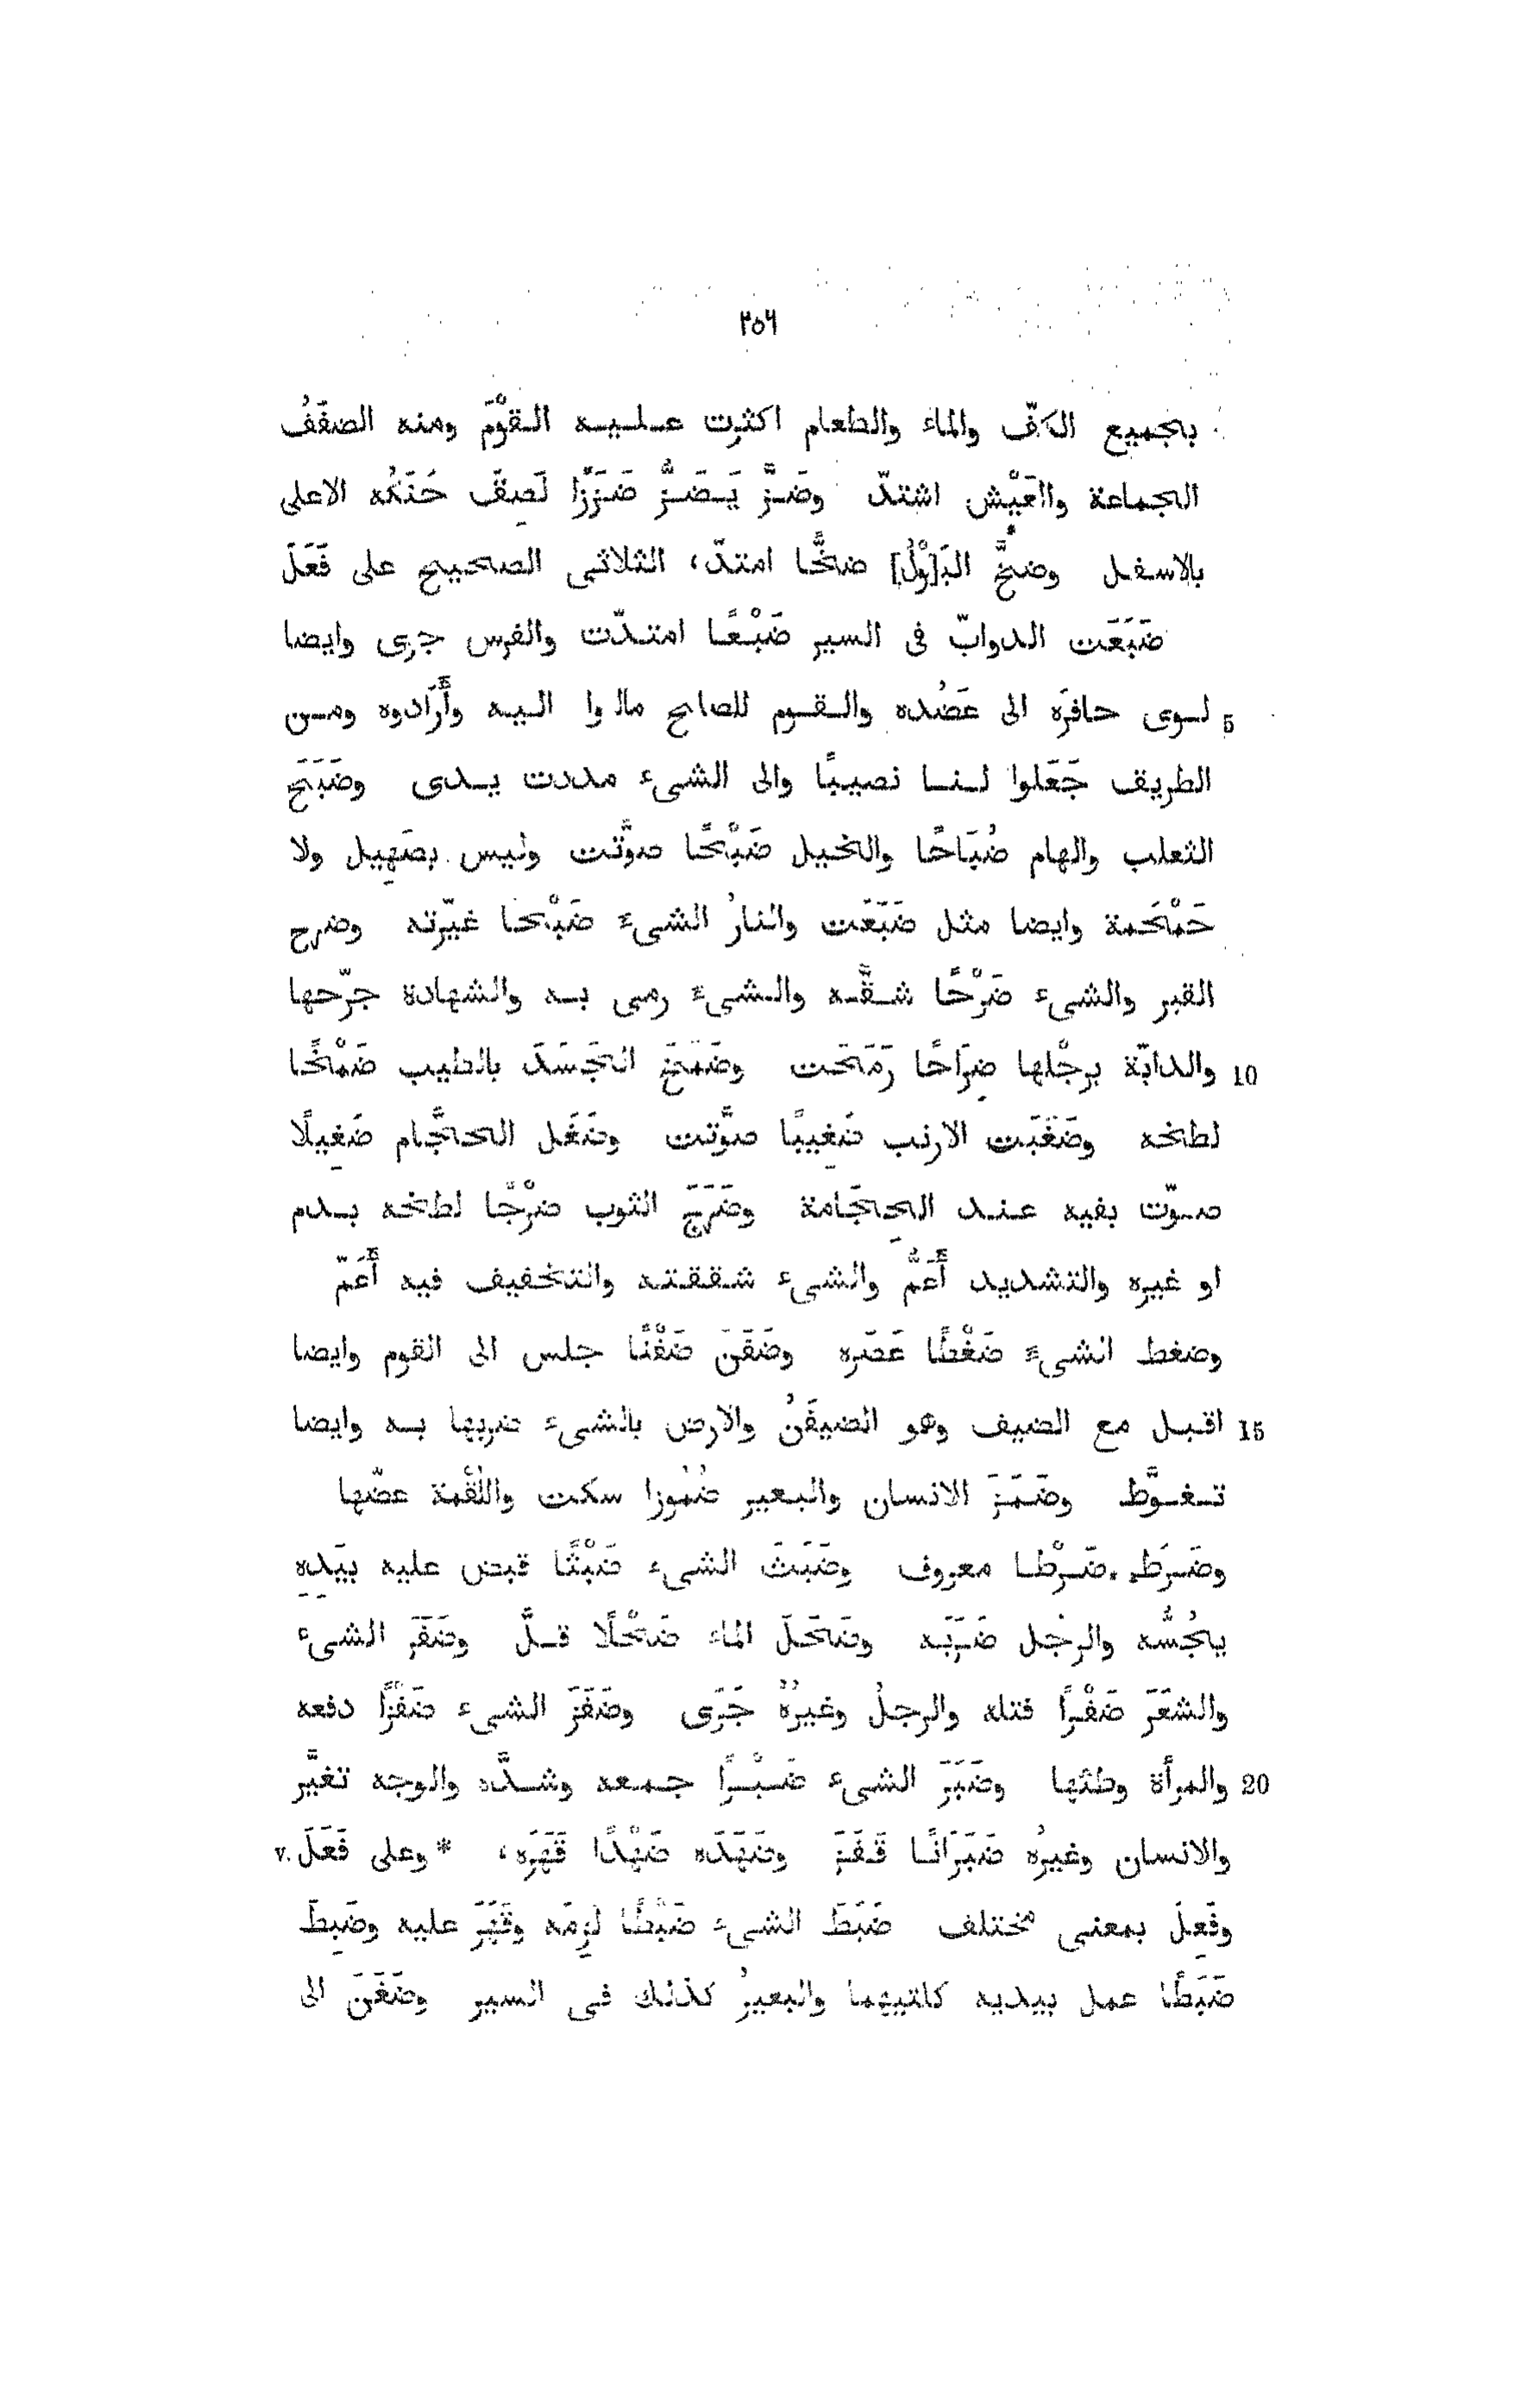 ٢٥٦
بجميع الكفّ والماء والطعام اكثرت عليه القوْمَ ومنه الضفَفُ
الجماعة والعَيْش اشتدّ وضَزَّ يَضَزُّ ضَزَزًا لَصِقَ حَنَكُه الاعلى
بالاسفل وضخَّ البَ[وْلُ] ضخًّا امتدّ، الثلاثى الصحيح على فَعَلَ
ضَبَعَت الدوابّ فى السير ضَبْعًا امتدّت والفرس جرى وايضا
5 لوى حافرَه الى عَضُده والقوم للصلح مالوا اليه وأَرَادوه ومن
الطريق جَعَلوا لنا نصيبًا والى الشىء مددت يدى وضَبَحَ
الثعلب والهام ضُبَاحًا والخيل ضَبْحًا صوَّتت وليس بصَهِيل ولا
حَمْحَمة وايضا مثل ضَبَعَت والنارُ الشىءَ ضَبْحا غيّرته وضرح
القبر والشىء ضَرْحًا شقَّه والشىءَ رمى به والشهادة جرّحها
10 والدابّة برجْلها ضِرَاحًا رَمَحَت وضَمَخَ الجَسَدَ بالطيب ضَمْخًا
لطخه وضَغَبَت الارنب ضَغِيبًا صوَّتت وضَغَل الحجَّام ضَغِيلًا
صوّت بفيه عند الحِجَامة وضَرَجَ الثوب ضرْجًا لطخه بدم
او غيره والتشديد أَعَمُّ والشىء شققته والتخفيف فيه أَعَمّ
وضغط الشىءَ ضَغْطًا عَصَره وضَفَنَ ضَفْنًا جلس الى القوم وايضا
15 اقبل مع الضيف وهو الضيفَنُ والارض بالشىء ضربها به وايضا
تغوَّط وضَمَزَ الانسان والبعير ضُمُوزا سكت واللُقْمة عضّها
وضَرَط ضَرْطا معروف وضَبَثَ الشىء ضَبْثًا قبض عليه بيَدِهِ
يجُسُّه والرجُل ضَرَبَه وضَحَلَ الماء ضَحْلًا قلَّ وضَفَر الشىء
والشعَرَ ضَفْرًا فتله والرجلُ وغيرُهُ جَرَى وضَفَزَ الشىء ضَفْزًا دفعه
20 والمرأة وطئها وضَبَرَ الشىء ضَبْرًا جمعه وشدَّه والوجه تغيَّر
والانسان وغيرُه ضَبَرَانًا قَفَزَ وضَهَدَه ضَهْدًا قَهَرَه، * وعلى فَعَلَ v.
وفَعِلَ بمعنى مختلف ضَبَطَ الشىء ضَبْطًا لَزِمَه وقَهَرَ عليه وضَبِطَ
ضَبَطًا عمل بيديه كلتيهما والبعيرُ كذلك فى السير وضَغَنَ الى